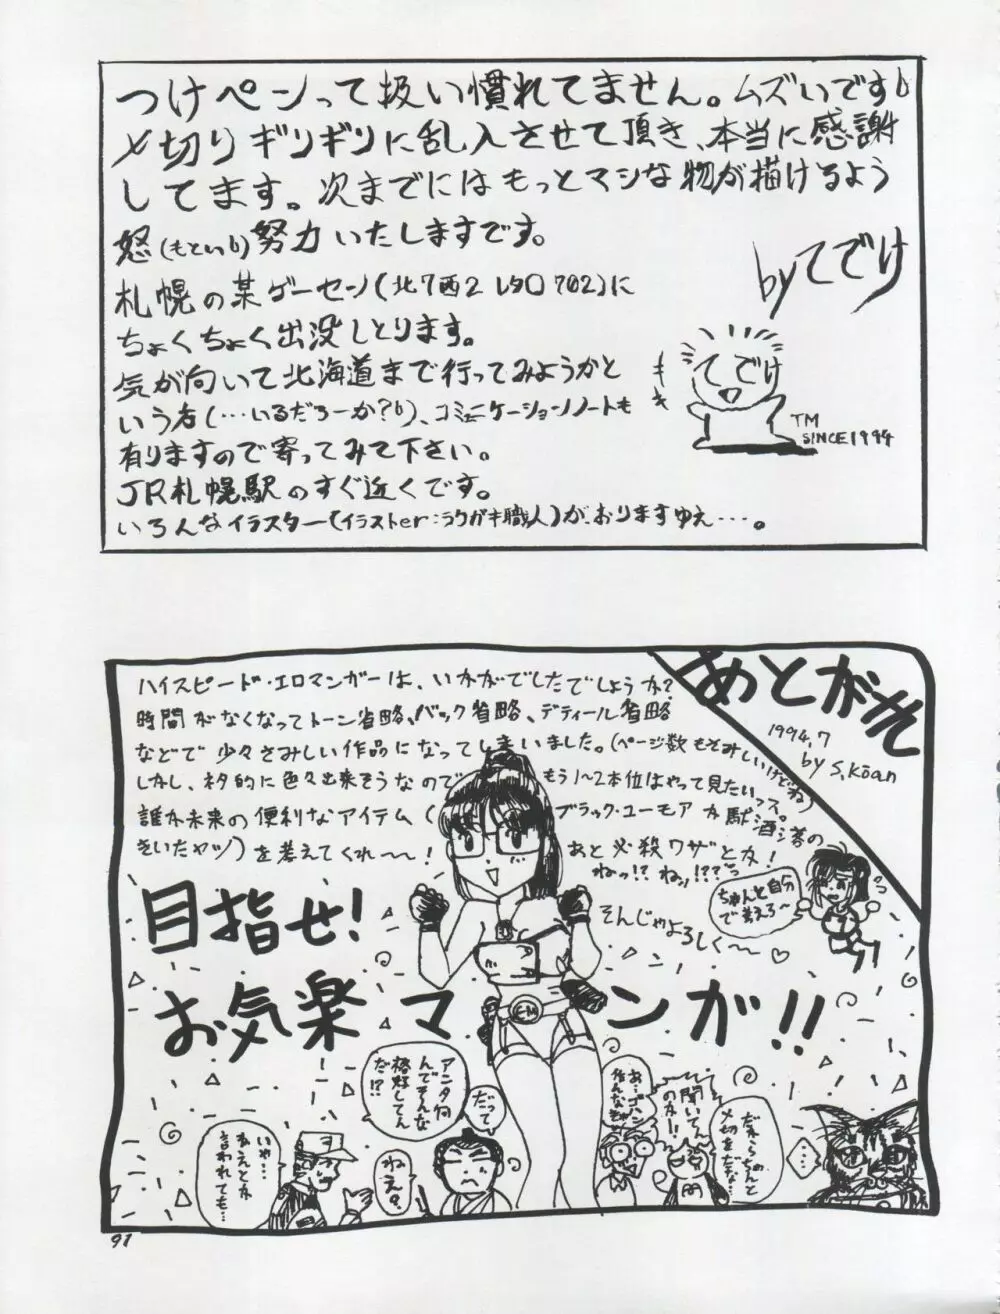 つけペンって扱い慣れてません。ムズいです
〆切りギリギリに乱入させて頂き、本当に感謝
してます。次までにはもっとマシな物が描けるよう
怒(もとい)努力いたしますです。
byてでけ
札幌の某ゲーセン(北7西2 レタロ702)に
ちょくちょく出没しとります。
気が向いて北海道まで行ってみようかと
いう者(…いるだろーか?)、コミュニケーションノートも
有りますので寄ってみて下さい。
JR札幌駅のすぐ近くです。
いろんなイラスター(イラストer:ラクガキ職人)が、おりますゆえ…。
てでけ
TM
SINCE1994
あとがき
1994.7
by S.Kōan
ハイスピード・エロマンガーは、いかがでしたでしょうか?
時間がなくなってトーン省略、バック省略、ディティール省略
などで少々さみしい作品になってしまいました。(ページ数もさみしいけどね)
しかし、ネタ的に色々出来そうなので もう1〜2本位はやって見たいっス。
誰か未来の便利なアイテム( ブラック・ユーモアか駄洒落の
きいたヤツ)を考えてくれ〜〜!
あと必殺ワザとか!
ねっ!?ねッ!??
ちゃんと自分で考えろ〜
そんじゃよろしく〜♡
目指せ!
お気楽マンガ!!
アンタ何んでそんな格好してんだ!?
だって
ねえ?
いや…ねえとか言われても…
お…ゴハン
聞いてんのか!!
だからちゃんと〆切をだな…
…
91